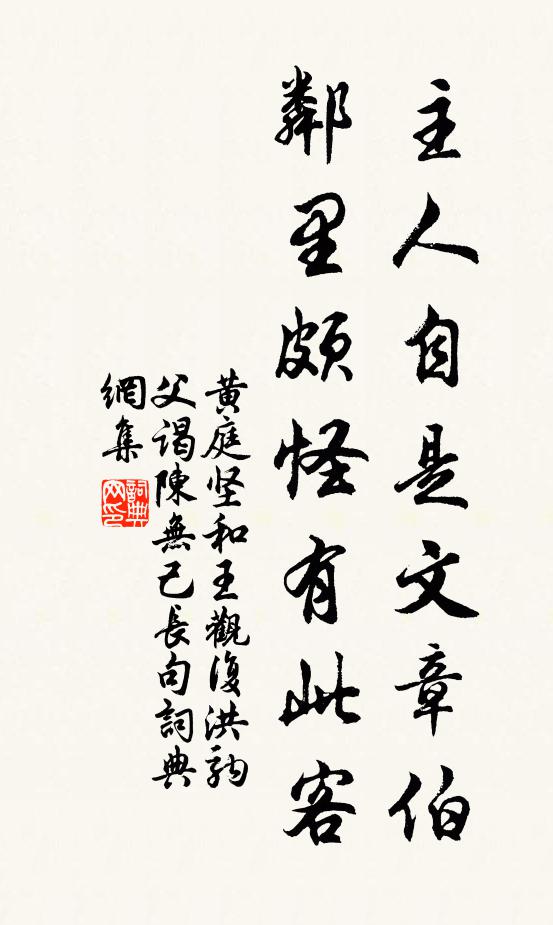 主人自是文章伯
鄰里頗怪有此客
黄庭坚和王觀復洪駒
父謁陳無己長句詞典
網集
詞典
网印